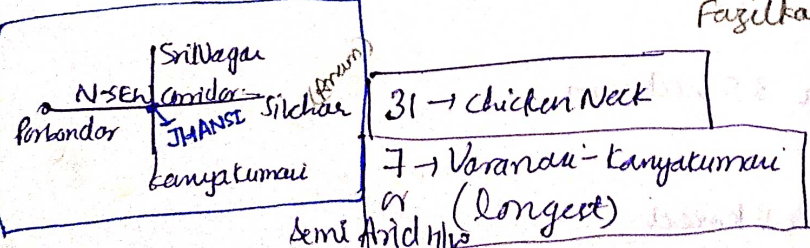 Fazilka
SriNagar
N-SEW Corridor
Silchar (Assam)
Porbandar
JHANSI
kanyakumari
31 → Chicken Neck
7 → Varanasi - Kanyakumari
or (longest)
Semi Arid